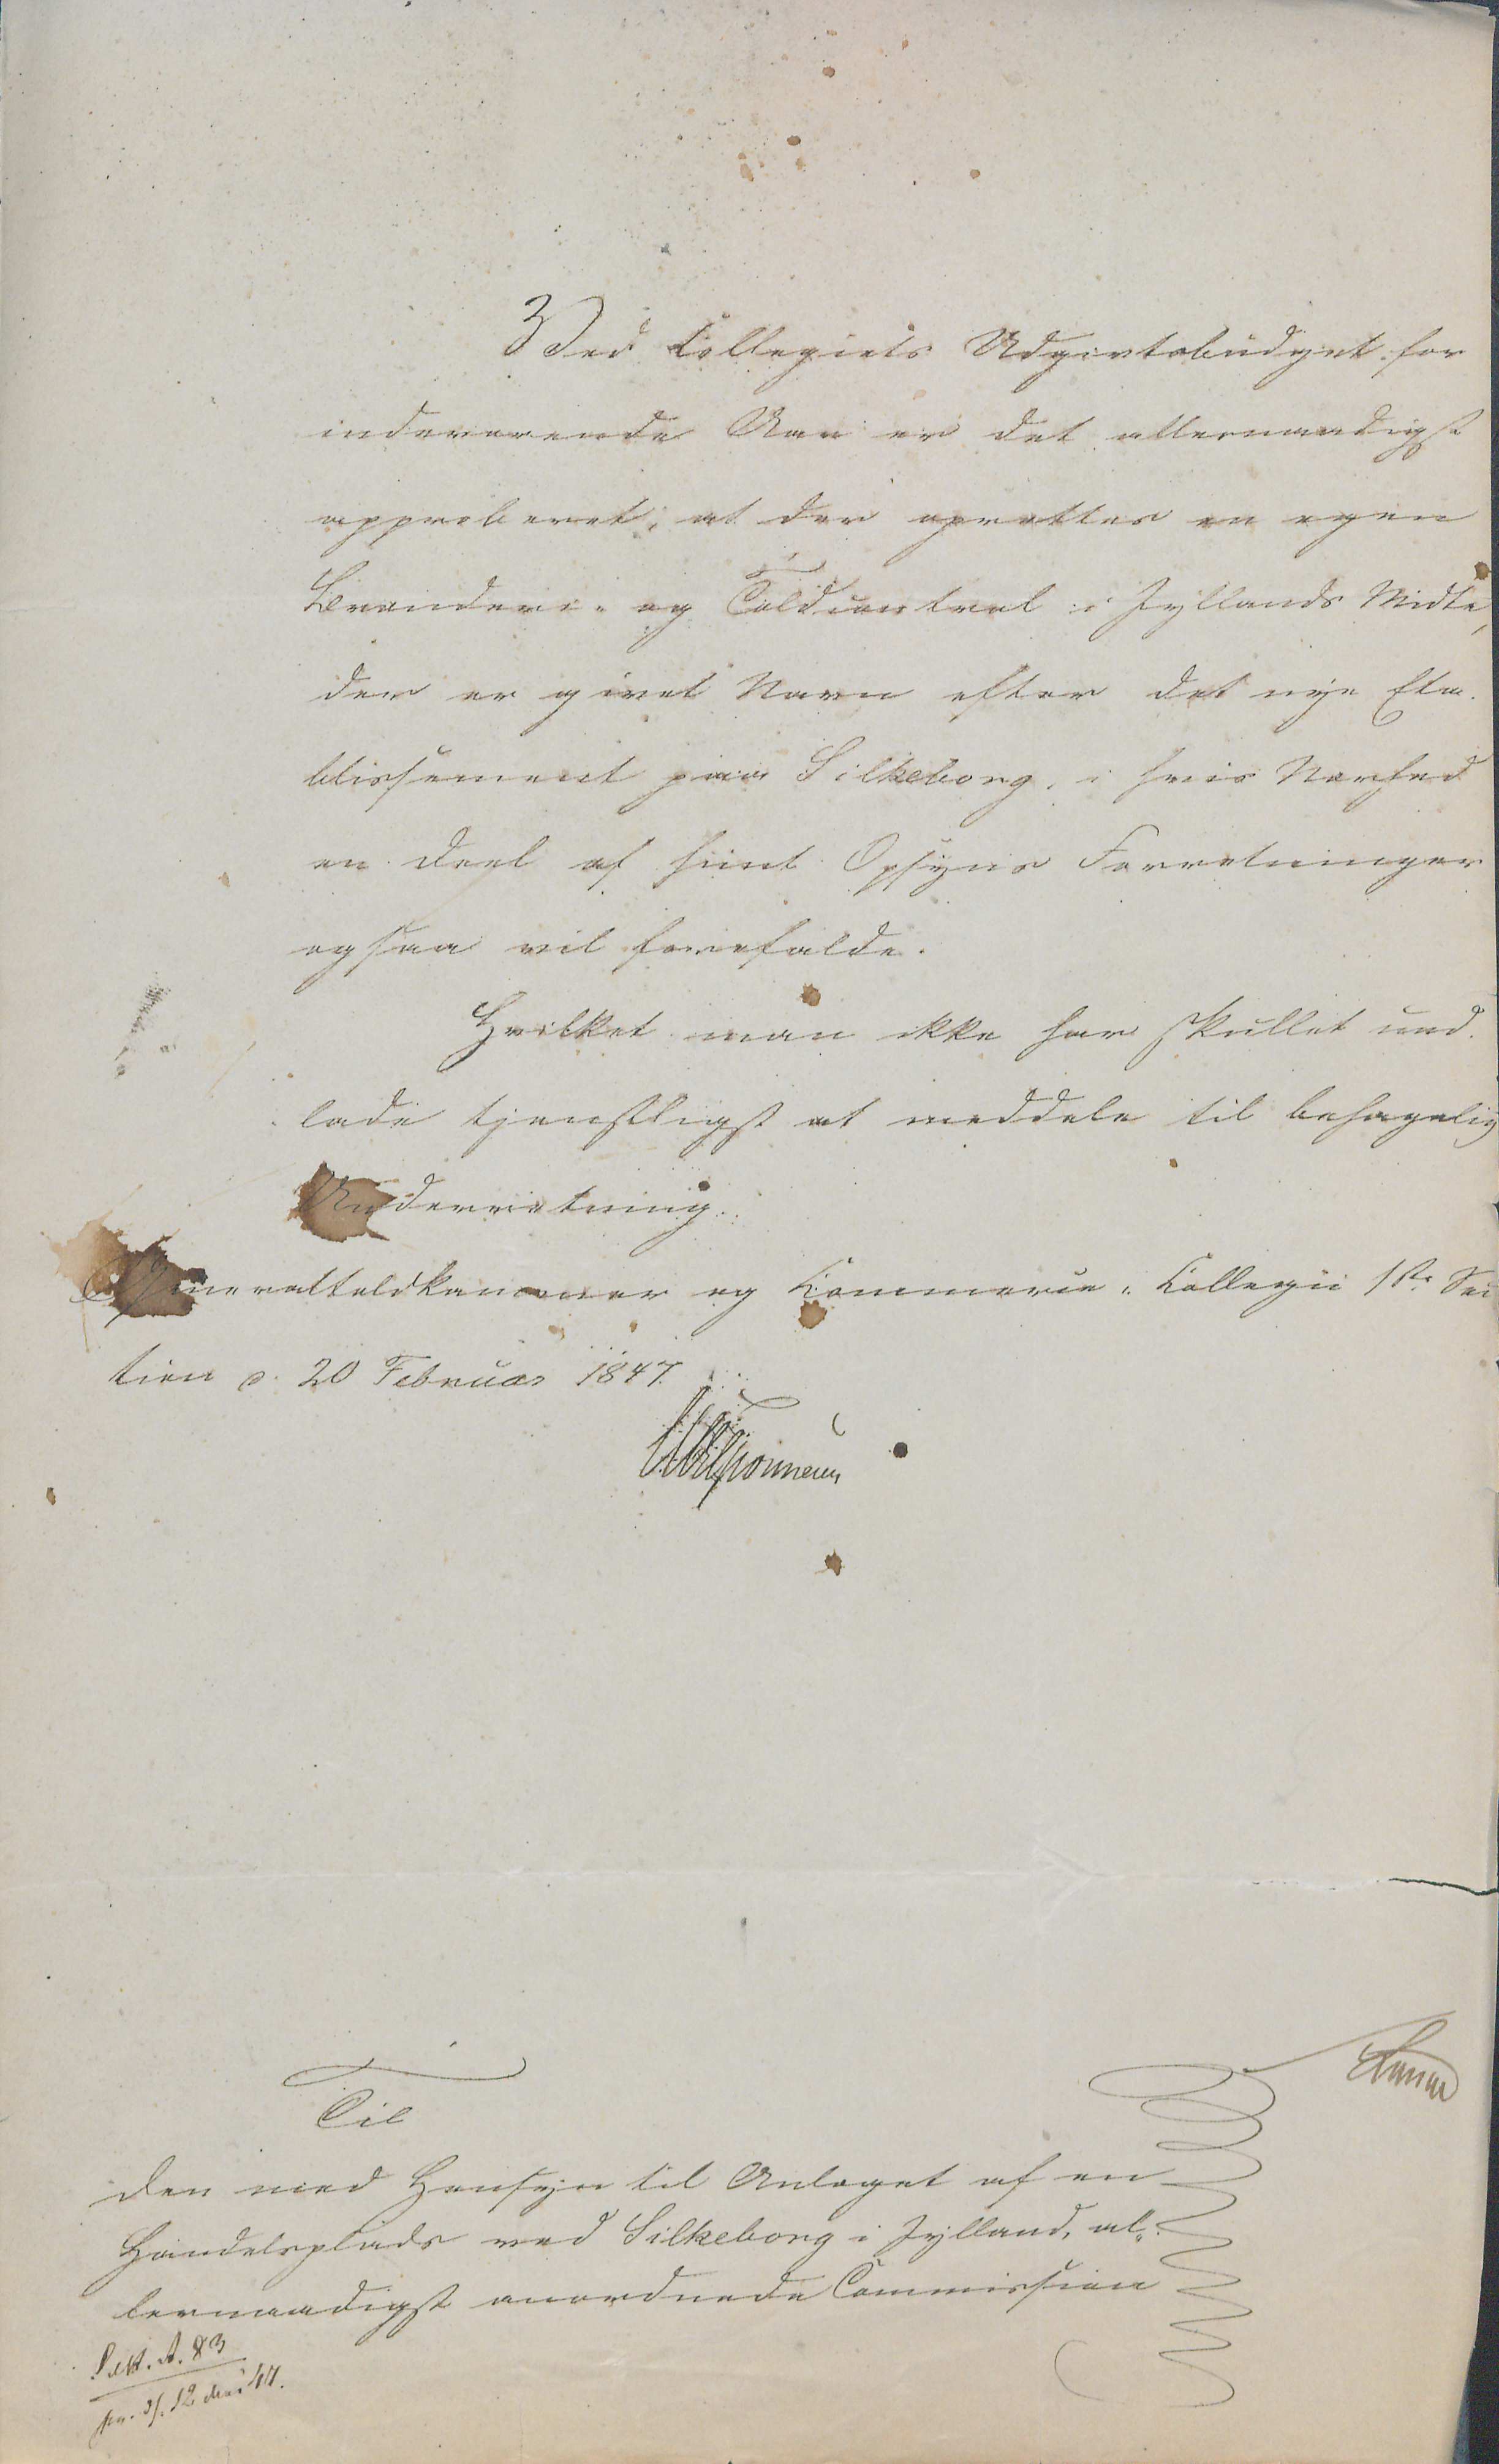 Ved Collegiets Udgivtsbudget for
indeværende Aar er det allernaadigst
approberet, at der oprettes en egen
Brænderi- og Toldcontrol i Jyllands Midte,
der er givet Navn efter det nye Eta-
blissement paa Silkeborg, i hvis Nærhed
en Deel af hiint Opsyns Forretninger
ogsaa vil forefalde.
Hvilket man ikke har skullet und-
lade tjenstligst at meddele til behagelig
Underretning.
Generaltoldkammer og Commerce-Collegii 1ste Sec
tion d. 20 Februar 1847.
Til
den med Hensyn til Anlæget af en
Handelsplads ved Silkeborg i Jylland, al-
lernaadigst anordnede Commission